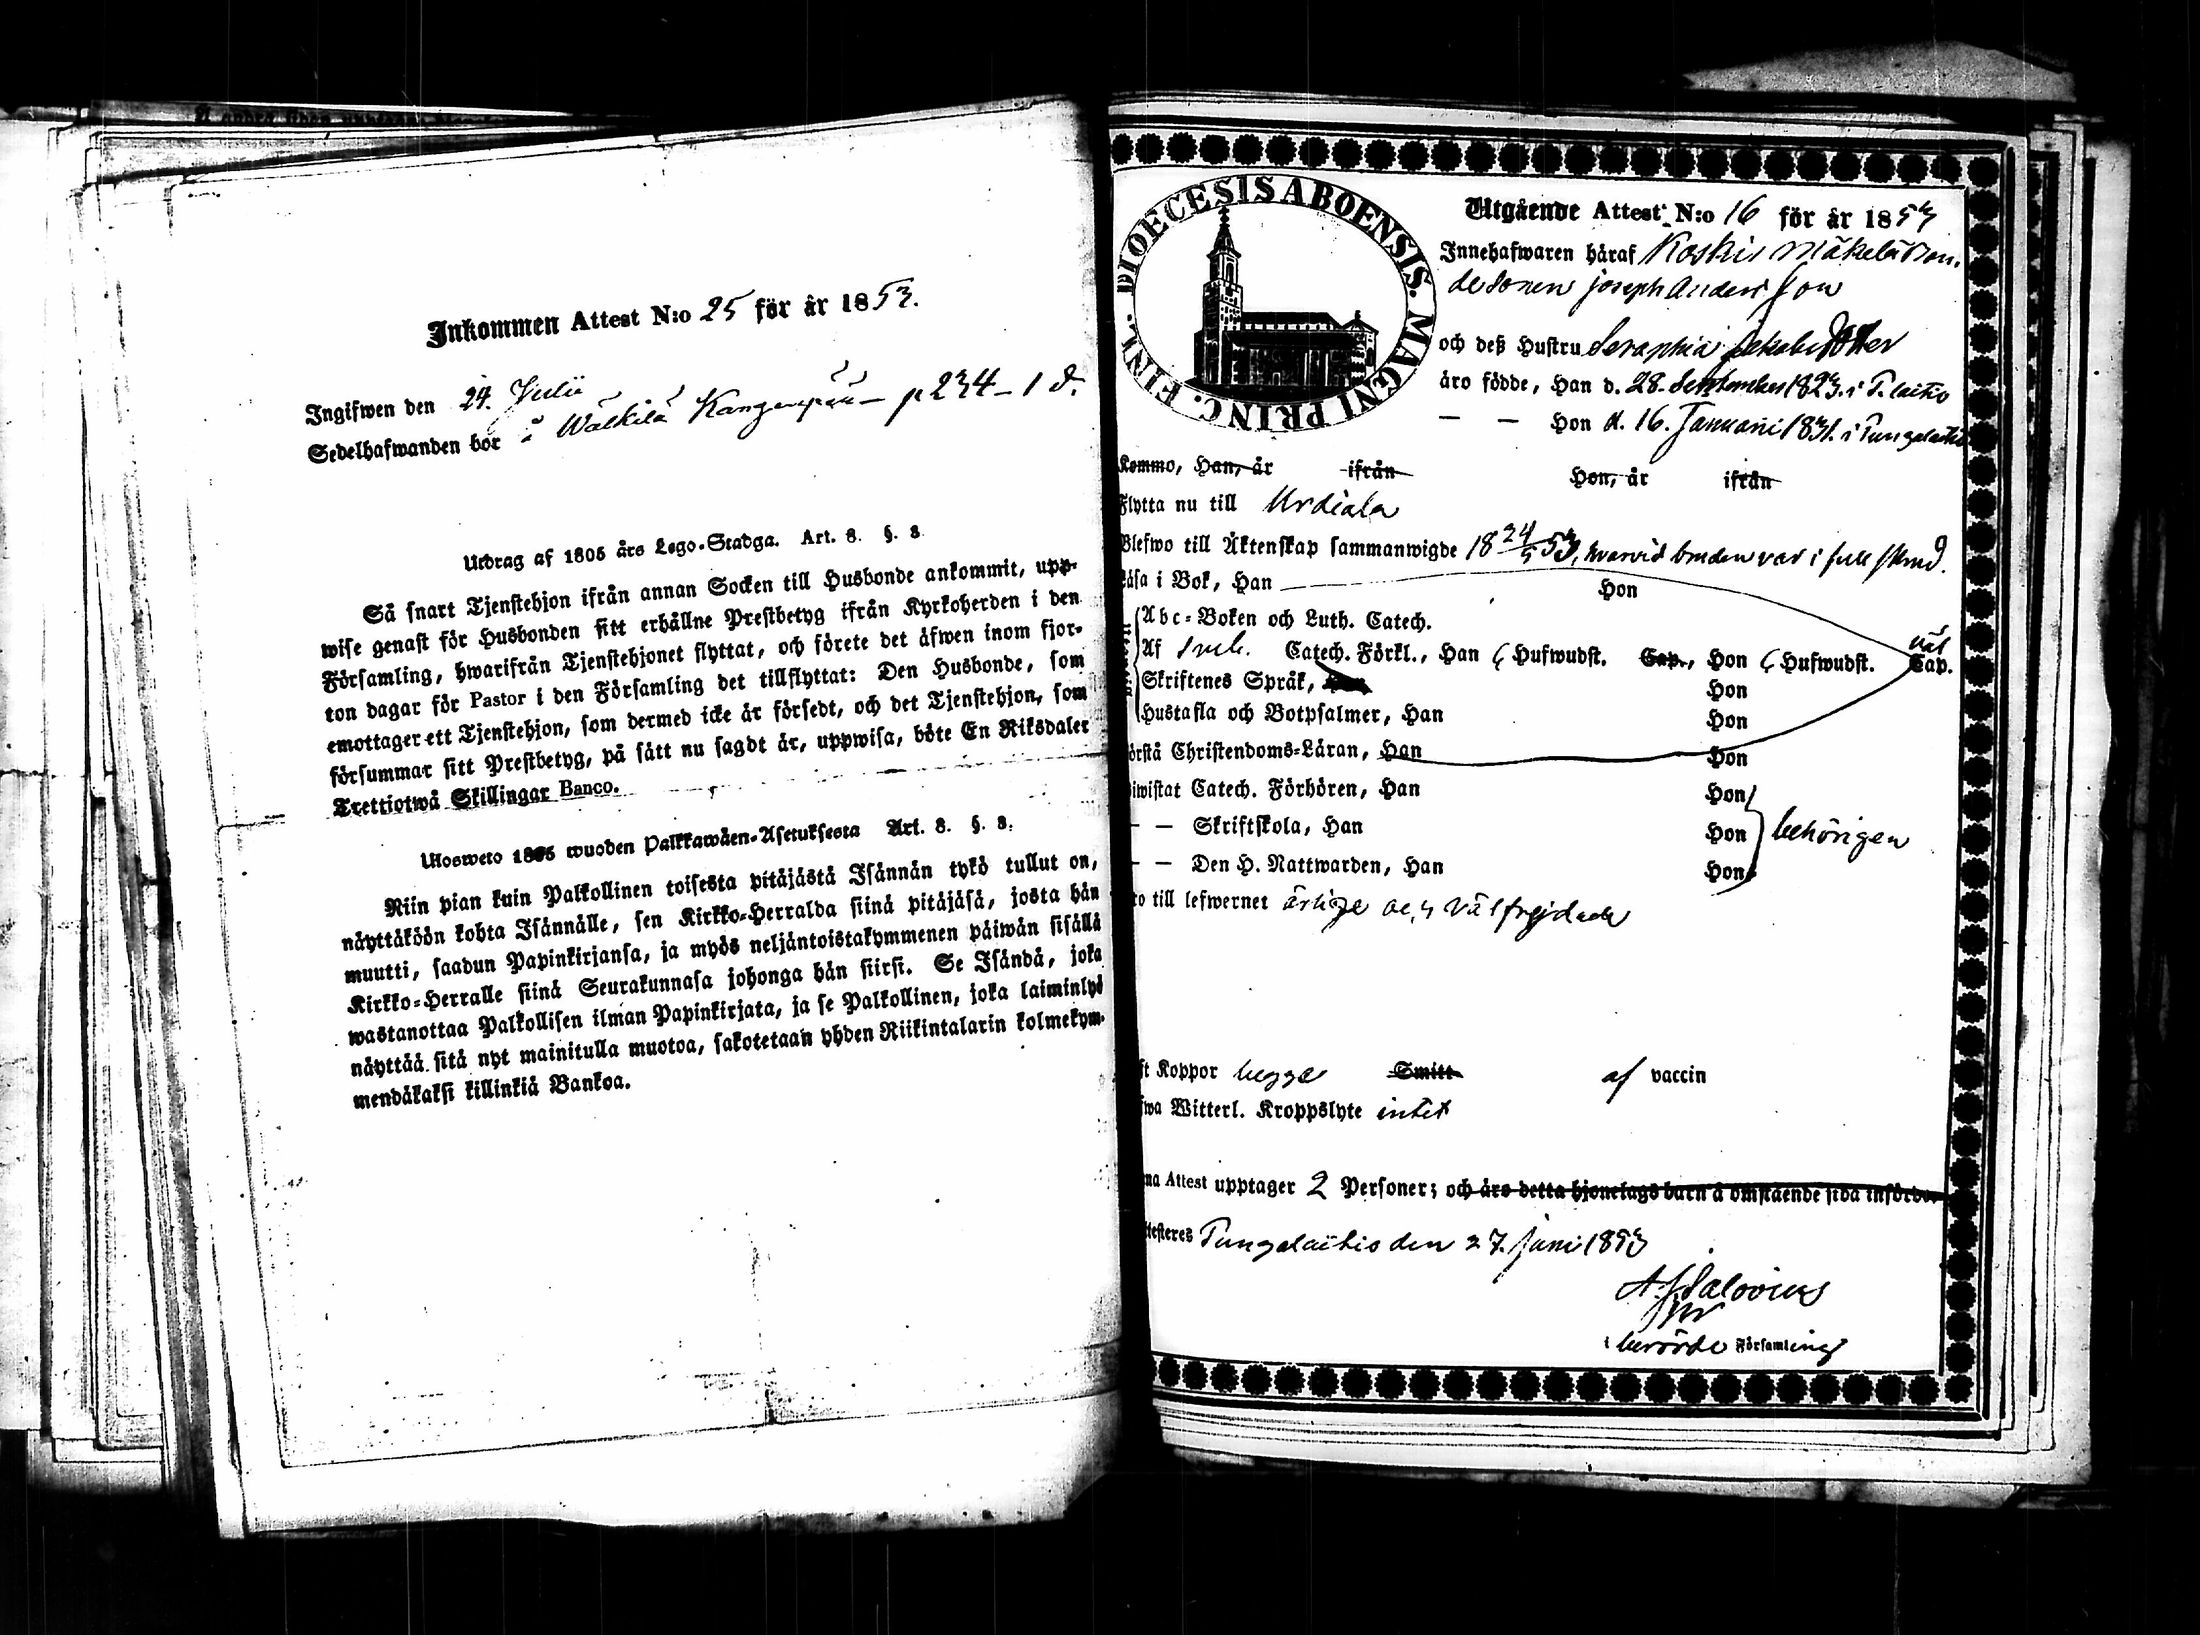 Inkommen Attest N:o 25 för år 1853.
Ingifwen den 29. Julii
Sedelhafwanden bor å Wälkilä p 234 – 1 d.
Utdrag af 1805 års Lego-Stadga. Art. 8. §. 8
Så snart Tjenstehjon ifrån annan Socken till Husbonde ankommit, upp-
wise genast för Husbonden sitt erhållne Prestbetyg ifrån Kyrkoherden i den
Församling, hwarifrån Tjenstehjonet flyttat, och förete det äfwen inom fjor-
ton dagar för Pastor i den Församling det tillflyttat: Den Husbonde, som
emottager ett Tjenstehjon, som dermed icke är försedt, och det Tjenstehjon, som
försummar sitt Prestbetyg, på sätt nu sagdt är, uppwisa, böte En Riksdaler
Trettiotwå Skillingar Banco.
Ulosweto 1805 wuoden Palkkawäen-Asetuksesta Art. 8. §. 8.
Niin pian kuin Palkollinen toisesta pitäjästä Isännän tykö tullut on,
näyttäköön kohta Isännälle, sen Kirkko-Herralda siinä pitäjäsä, josta hän
muutti, saadun Papinkirjansa, ja myös neljäntoistakymmenen päiwän sisällä
Kirkko-Herralle siinä Seurakunnasa johonga hän siirsi. Se Isändä, joka
wastanottaa Palkollisen ilman Papinkirjata, ja se Palkollinen, joka laiminlyö
näyttää sitä nyt mainitulla muotoa, sakotetaan yhden Riikintalarin kolmekym-
mendäkaksi killinkiä Bankoa.
DIOECESIS ABOENSIS. MAGNI PRINC. FINL.
Utgående Attest N:o 16 för år 1853
Innehafwaren häraf Koskis Mäkelä Bon-
desonen Joseph Andersson
och deß Hustru Seraphia Jakobsdotter
äro födde, Han d. 28. September 1823. i T. laitio
— — Hon d. 16. Januari 1831. i Tungelaitio
Kommo, Han, år ifrån Hon, år ifrån
Flytta nu till Urdiala
Blefwo till Äktenskap sammanwigde 18 24/5 53, hvarvid bruden var i full skrud.
Läsa i Bok, Han Hon
Abc-Boken och Luth. Catech.
Af Catech. Förkl., Han 6 Hufwudst. Cap., Hon 6 Hufwudst. väl Cap.
Skriftenes Språk, Han Hon
Hustafla och Botpsalmer, Han Hon
örstå Christendoms-Läran, Han Hon
iwistat Catech. Förhören, Han Hon
— — Skriftskola, Han Hon behörigen
— — Den H. Nattwarden, Han Hon
ro till lefwernet ärlige och välfrejdade
ft Koppor begge Smitt af vaccin
fwa Witterl. Kroppslyte intet
na Attest upptager 2 Personer; och äro detta hjonelags barn å omstående sida införde
ttesteres Tungelaitio den 27. Juni 1853
A. J. Salovius
i berörde Församling